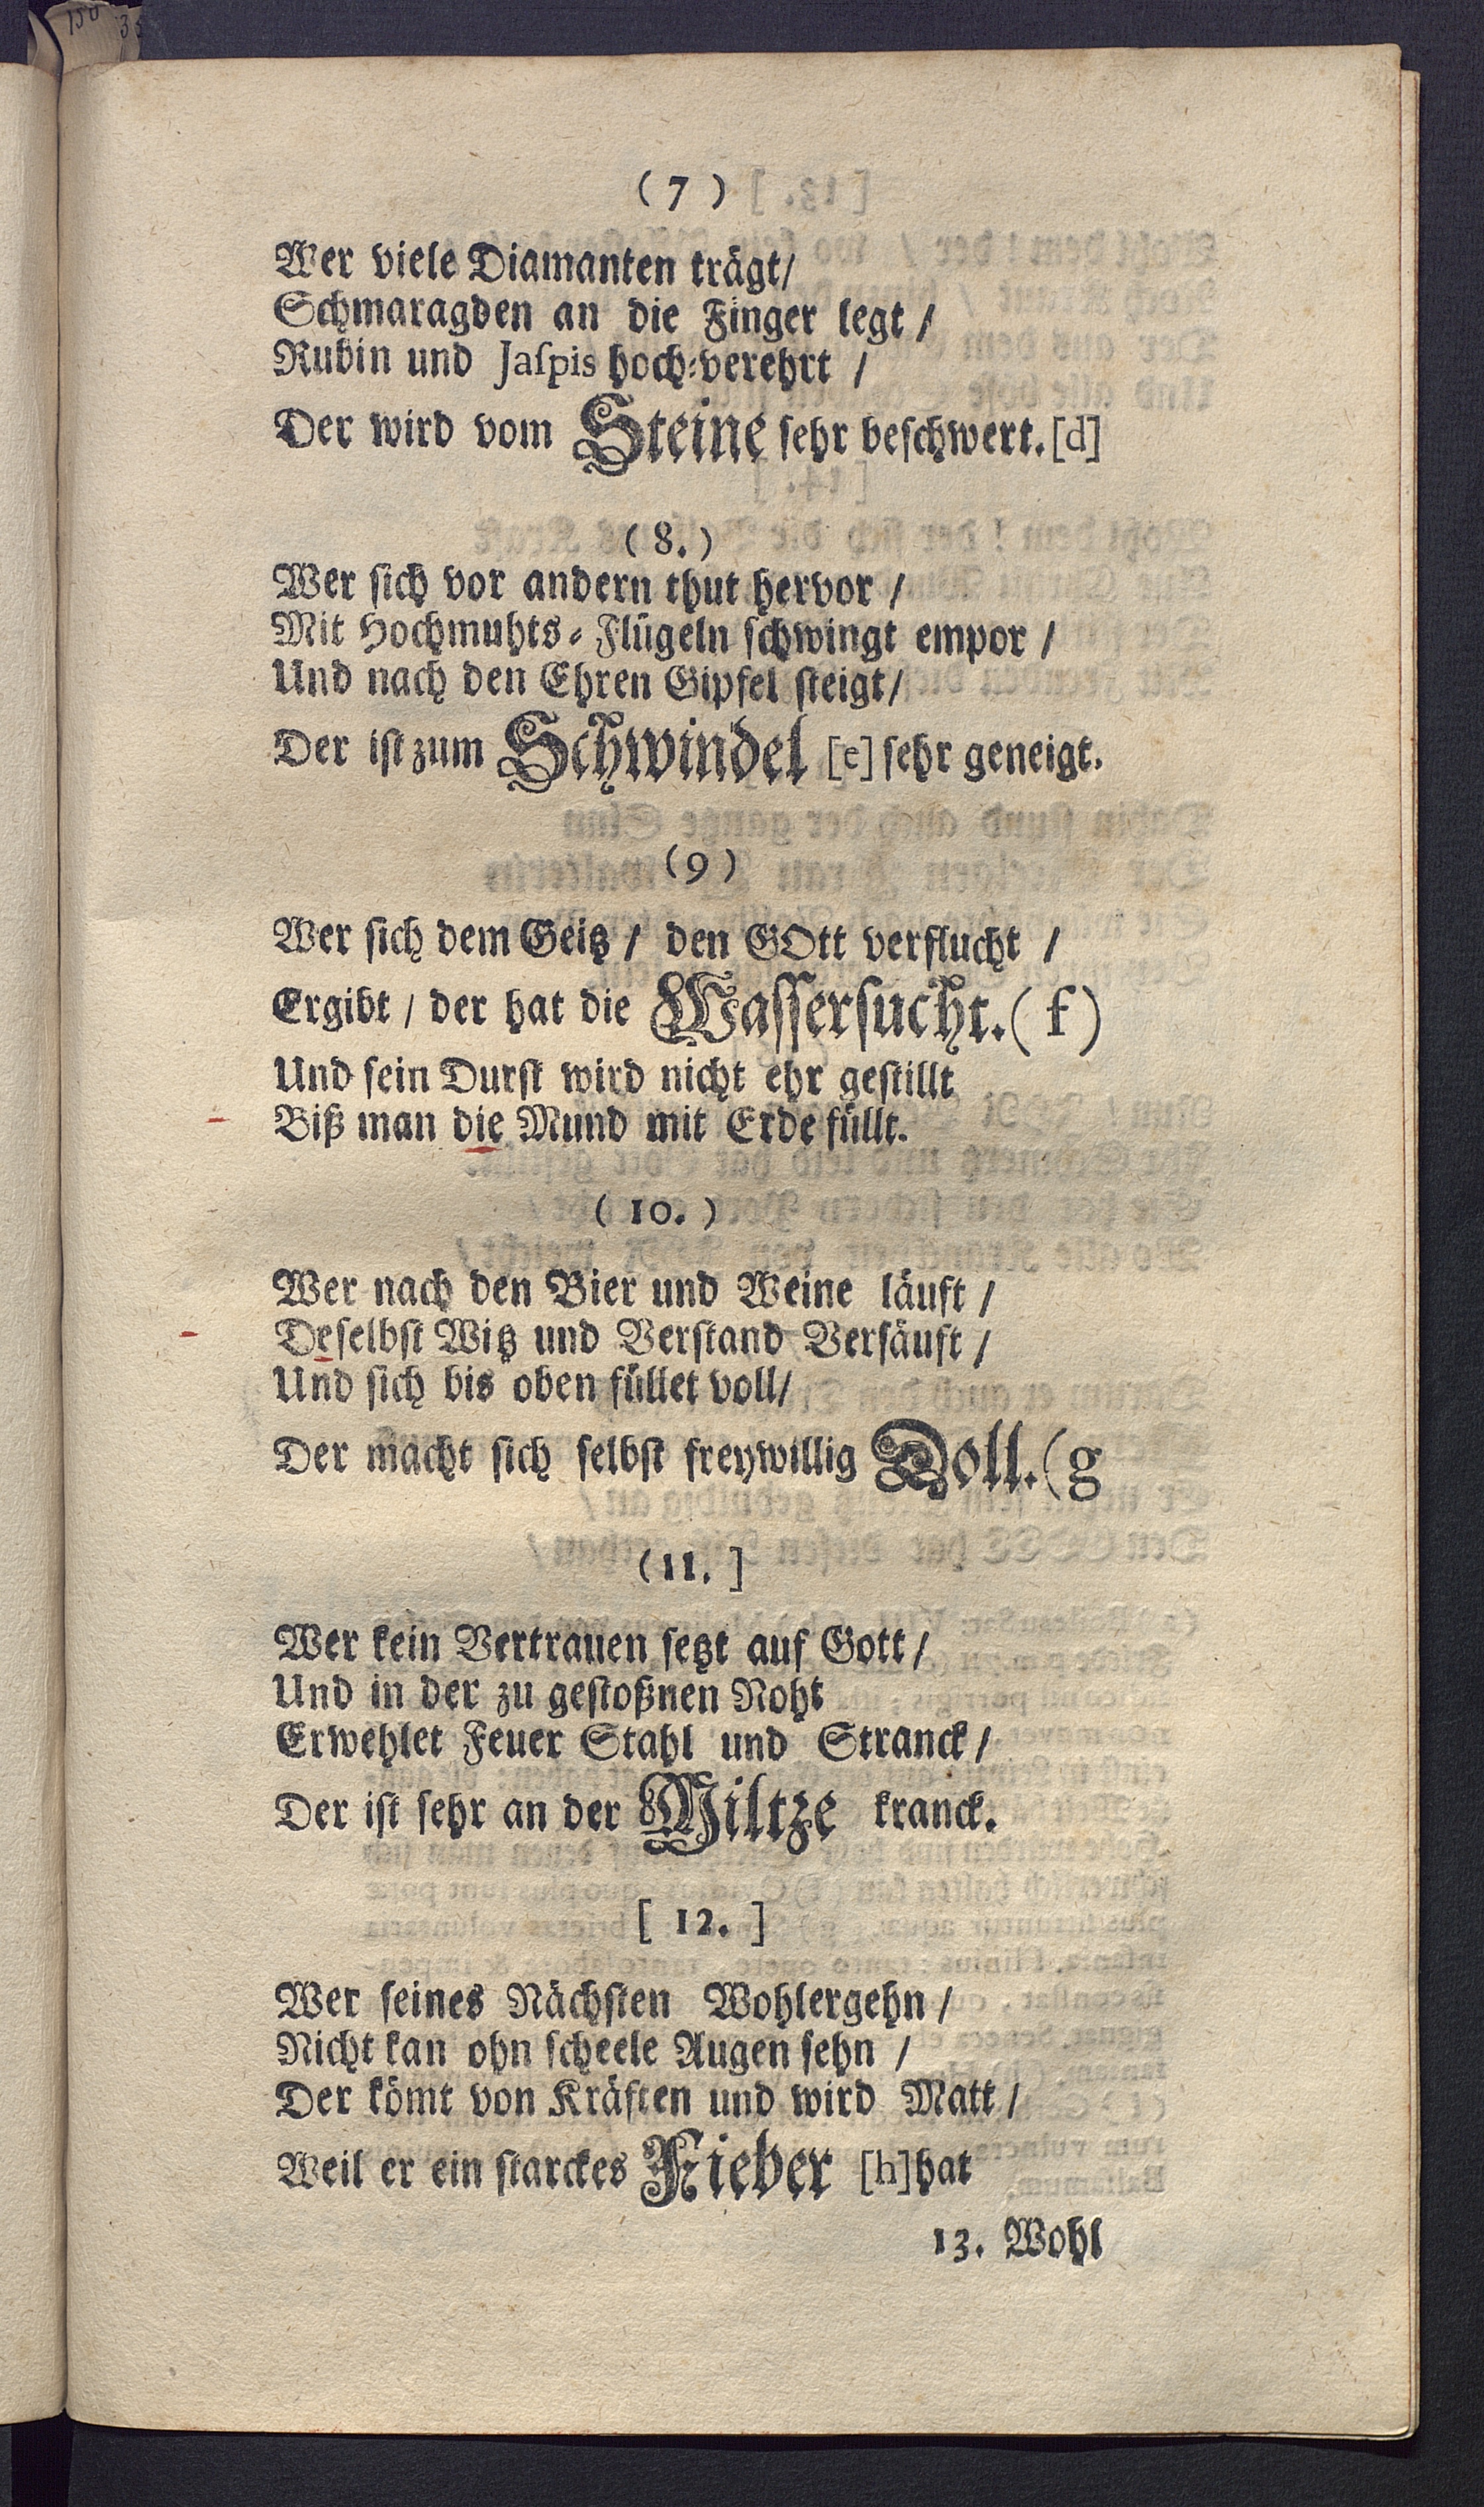 (7)
Wer viele Diamanten trägt/
Schmaragden an die Finger legt /
Rubin und Jaſpis hoch-verehrt /
Der wird vom Steine ſehr beſchwert. [d]
(8.)
Wer ſich vor andern thut hervor /
Mit Hochmuhts-Flügeln ſchwingt empor /
Und nach den Ehren Gipfel ſteigt/
Der iſt zum Schwindel [e] ſehr geneigt.
(9)
Wer ſich dem Geitz / den GOtt verflucht /
Ergibt / der hat die Waſſerſucht. (f)
Und ſein Durſt wird nicht ehr geſtillt
Biß man die Mund mit Erde füllt.
(10.)
Wer nach den Bier und Weine läuft /
Deſelbſt Witz und Verſtand Verſäuft /
Und ſich bis oben füllet voll/
Der macht ſich ſelbſt freywillig Doll. (g
(11.]
Wer kein Vertrauen ſetzt auf Gott /
Und in der zu geſtoßnen Noht
Erwehlet Feuer Stahl und Stranck /
Der iſt ſehr an der Miltze kranck.
[12.]
Wer ſeines Nächſten Wohlergehn /
Nicht kan ohn ſcheele Augen ſehn /
Der kömt von Kräften und wird Matt /
Weil er ein ſtarckes Fieber [h] hat
13. Wohl